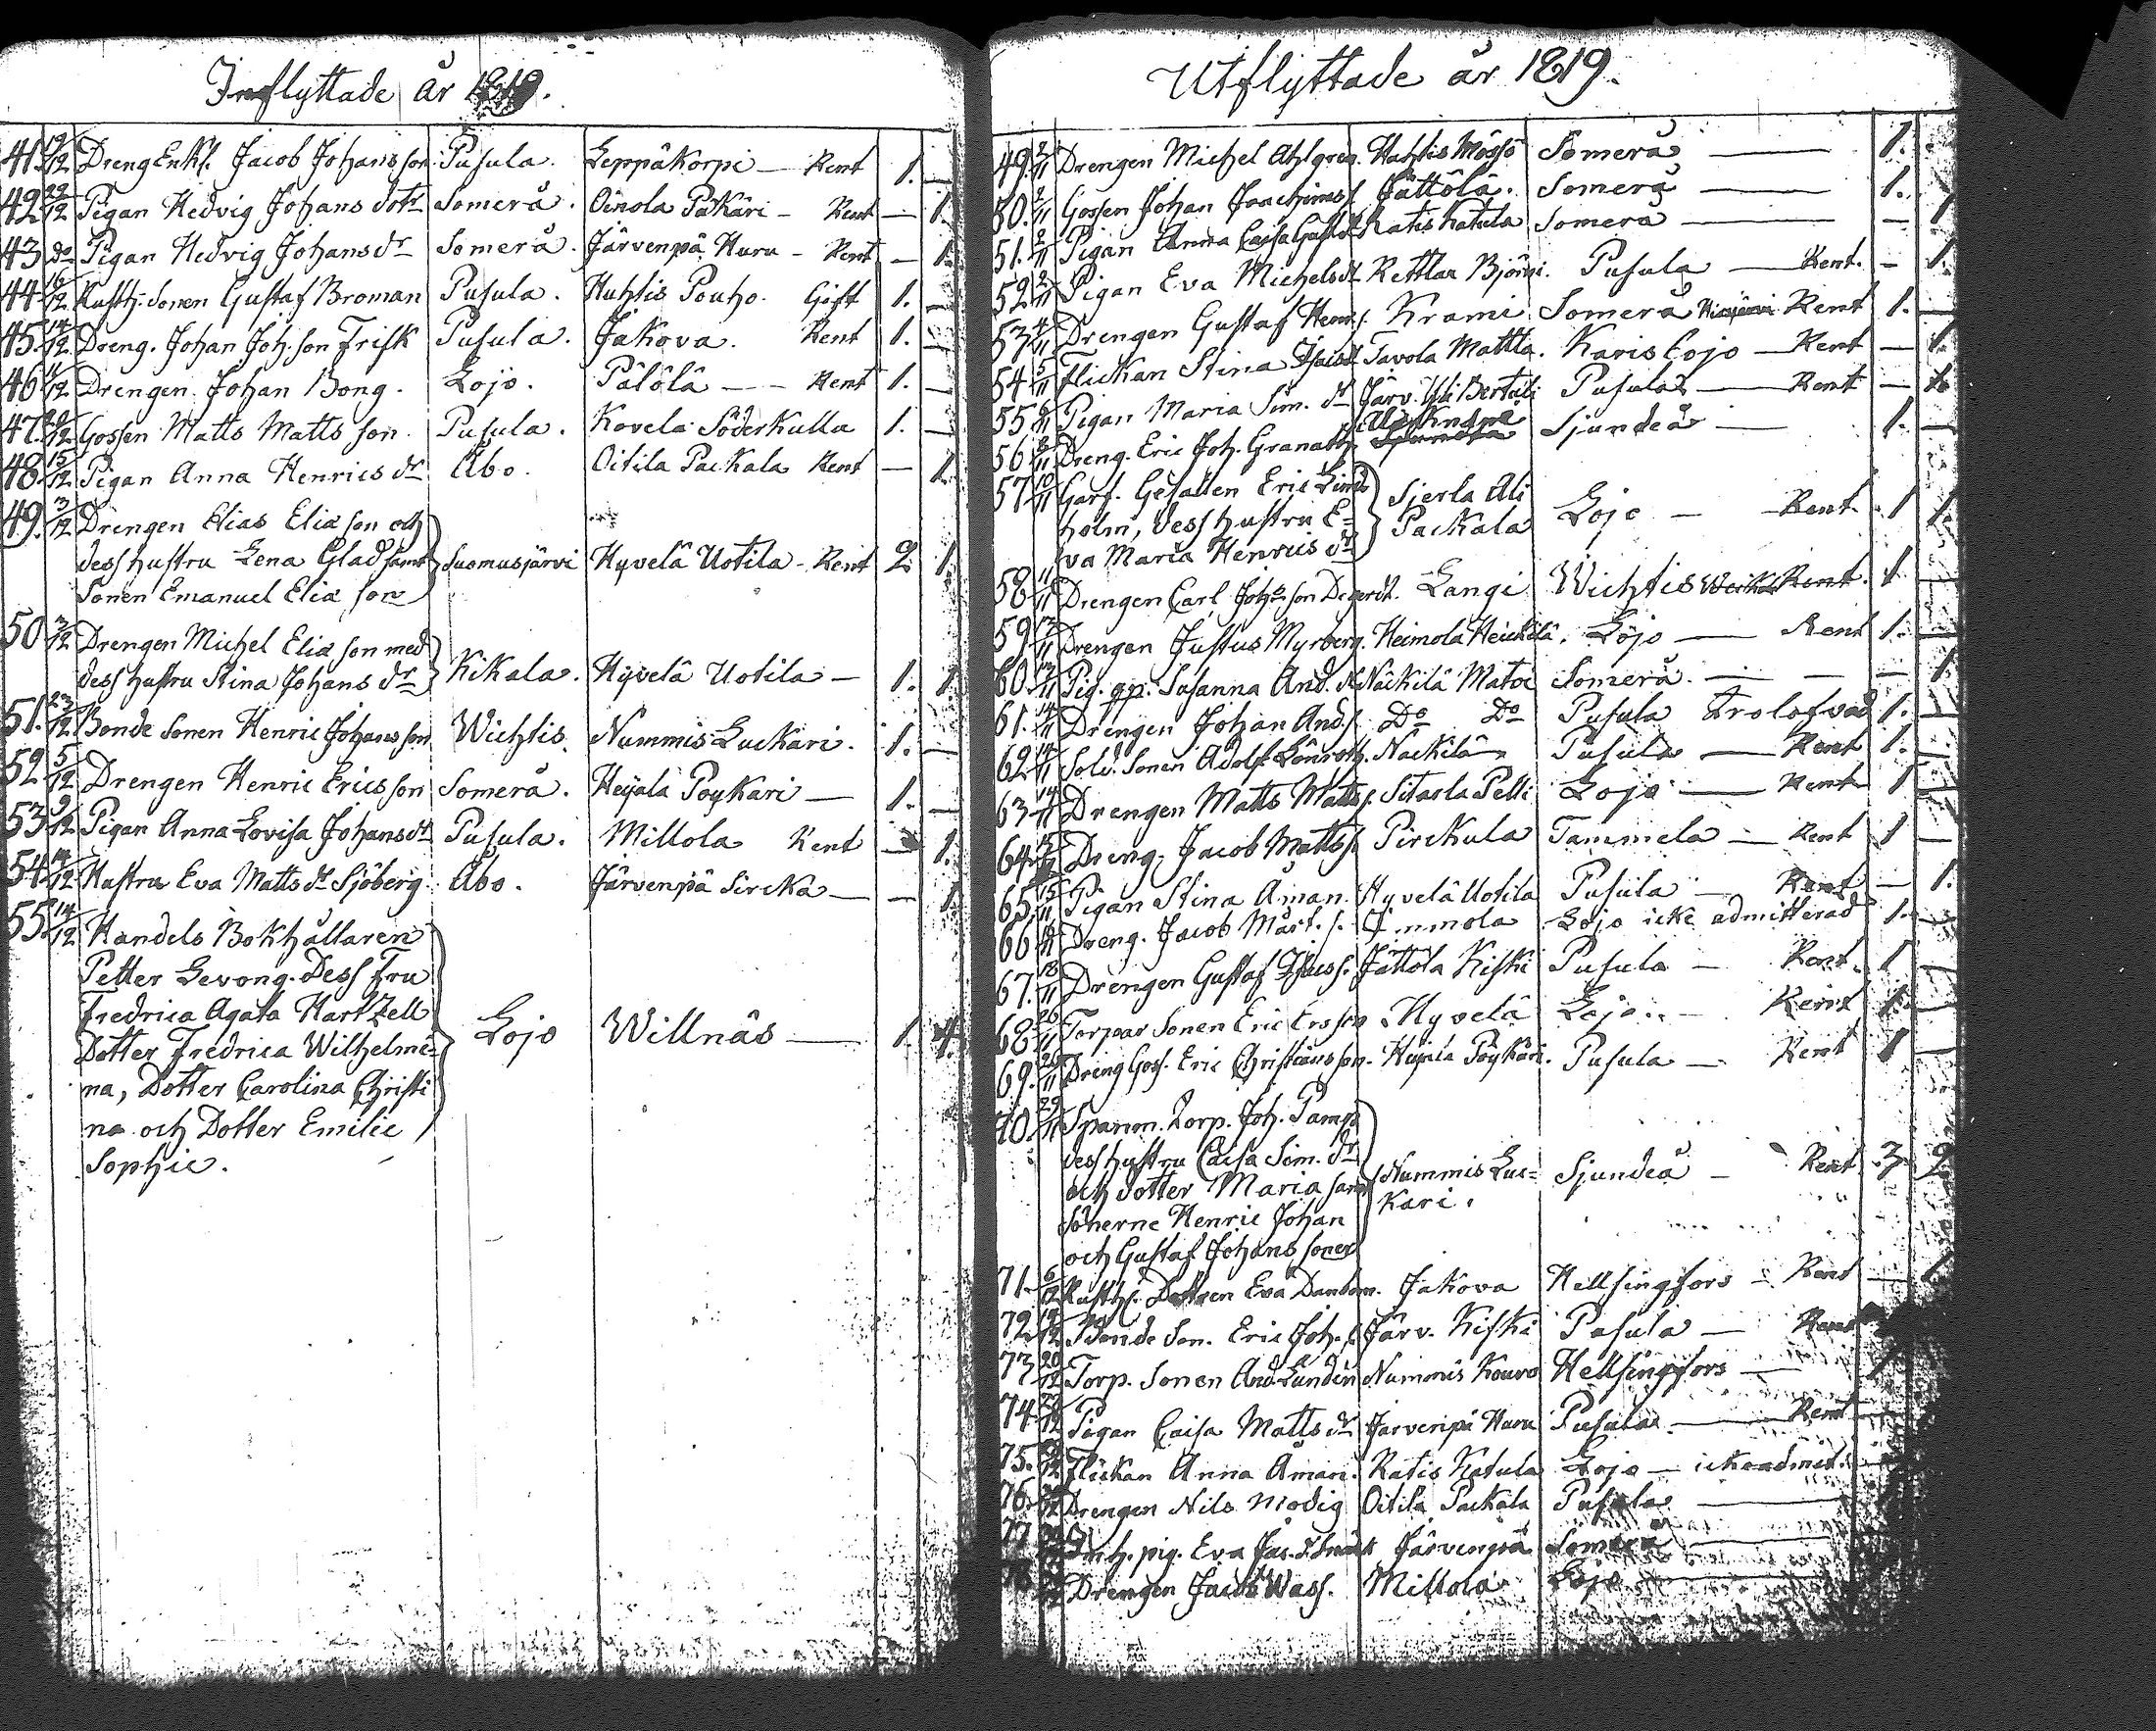 Inflyttade år 1819.
41. 19/12 Dreng Enkl. Jacob Johans son Pusula. Leppäkorpi — Rent 1. —
42. 22/12 Pigan Hedvig Johans dotr Somerå. Oinola Päkäri — Rent — 1.
43 do Pigan Hedvig Johans dr Somerå. Järvenpä Huru — Rent — 1.
44. 16/12 Rusth. Sonen Gustaf Broman Pusula. Huhtis Pouho. Gift 1. —
45. 14/12 Dreng. Johan Joh. son Frisk Pusula. Jakova. Rent 1. —
46 11/12 Drengen Johan Bong. Lojo. Pälölä — Rent 1. —
47. 20/12 Gossen Matts Matts son. Pusula. Kovela Söderkulla 1. —
48. 15/12 Pigan Anna Henrics dr Åbo. Oitila Packala Rent — 1.
49. 3/12 Drengen Elias Elia son och
dess hustru Lena Glad samt Suomusjärvi Hyvelä Uotila — Rent 2 1.
Sonen Emanuel Elia son
50 3/12 Drengen Michel Elia son med
dess hustru Stina Johans dr Kikala. Hyvelä Uotila — 1. 1.
51. 23/12 Bonde Sonen Henric Johans son Wichtis. Nummis Luckari. 1. —
52 5/12 Drengen Henric Ericsson Somerå. Heijala Poykäri — 1. —
53 9/12 Pigan Anna Lovisa Johans dr Pusula. Millola Rent — 1.
54. 14/12 Hustru Eva Matts dr Sjöberg Åbo. Järvenpä Sircka — — 1.
55. 14/12 Handels Bokhållaren
Petter Levong. Dess Fru
Fredrica Agata Hartzell
Dotter Fredrica Wilhelmi- Lojo Willnäs — 1. 4.
na, Dotter Carolina Christi
na och Dotter Emilie
Sophie.
Utflyttade år 1819.
49. 2/11 Drengen Michel Ahlgren. Hahtis Mossö Somerå — 1.
50. 2/11 Gossen Johan Joachims s. Jättölä. Somerå — 1.
51. 2/11 Pigan Anna Caisa Gust. dr Ratis Katula Somerå — — 1
52 2/11 Pigan Eva Michels dr Rettlaa Björni Pusula — Rent. — 1.
53 4/11 Drengen Gustaf Henr. s. Krami Somerå Rent 1. —
54 5/11 Flickan Stina Isacs dr Tavola Mattla. Karislojo — Rent — 1.
55 Pigan Maria Sim. dr Järv. Yli Bertuli Pusula — Rent — 1.
56 8/11 Dreng. Eric Joh. Granath. Sjundeå — 1.
57 10/11 Garf. Gesällen Eric Lind-
holm, dess hustru E- Sjerla Ali Lojo — Rent. 1 1.
va Maria Henrics dr Packala
58 11/11 Drengen Carl Johs son Degerst. Langi Wichtis Rent. 1 —
59 12/11 Drengen Justus Myrberg. Heimola Heickilä. Lojo — Rent 1. —
60. 13/11 Pig. gp. Susanna And. dr Näckilä Matoi Somerå — — 1.
61. 14/11 Drengen Johan And. s. Do Do Pusula Trolofvad 1. —
62 14/11 Sold. Sonen Adolf Lönroth. Näckilä Pusula — Rent 1. —
63 14/11 Drengen Matts Matts s. Sitarla Pelli Lojo — Rent 1 —
64 Dreng. Jacob Matts s. Pirckula Tammela — Rent 1 —
65. 15/11 Pigan Stina Åman. Hyvelä Uotila Pusula — Rent — 1.
66 Dreng. Jacob Mårt. s. Lojo icke admitterad 1. —
67. 18/11 Drengen Gustaf Isacs s. Jättölä Kiski Pusula — Rent. 1 —
68 26/11 Torpar Sonen Eric Ersson Hyvelä Lojo. — Rent 1. —
69. 26/11 Dreng Goss. Eric Christians son. Heijala Pöykäri. Pusula — Rent 1 —
70. 29/11 Spanm. Torp. Joh. Pamp
dess hustru Caisa Sim. dr
och dotter Maria samt Nummis Luc- Sjundeå — Rent 3. 2.
Sönerne Henric Johan kari.
och Gustaf Johans söner
71. 6/12 Rusth. Dottren Eva Danbom. Jakova Hellsingfors — Rent — 1
72 Bonde Son. Eric Joh. s. Järv. Kiski Pusula — Rent
73 20/12 Torp. Sonen And. Lundin Nummis Kouvo Hellsingfors — 1
74 Pigan Caisa Matts dr Järvenpä Huru Pusula. — Rent —
75. Flickan Anna Åman. Ratis Katula Lojo — icke admit.
76. Drengen Nils Modig Oitila Packala Pusula —
77 Inh. pig. Eva Jac. dr Järvenpä Somerå —
Drengen Jacob Wass. Millola Lojo —